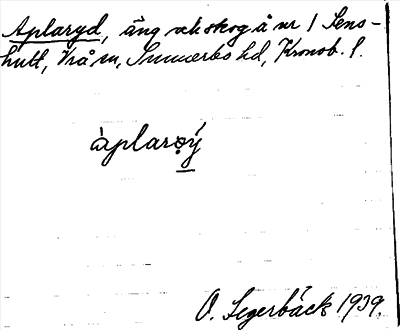 Aplaryd, äng och skog å nr 1 Sens-
hult, Vrå sn, Sunnerbo hd, Kronob. l.
àplarǫý
O. Segerbäck 1939.